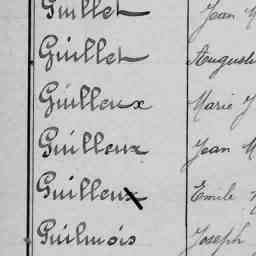 Guillet Jean M
Guillet Auguste
Guilleux Marie J
Guilleux Jean M
Guilleux Emile
Guilmois Joseph